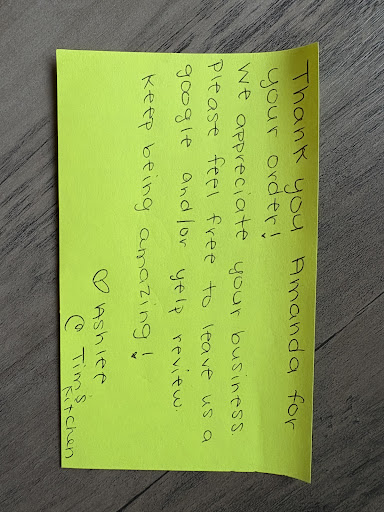 Thank you Amanda for
your order!
We appreciate your business.
Please feel free to leave us a
google and/or yelp review.
Keep being amazing!
♡ Ashlee
@ Tim's
Kitchen